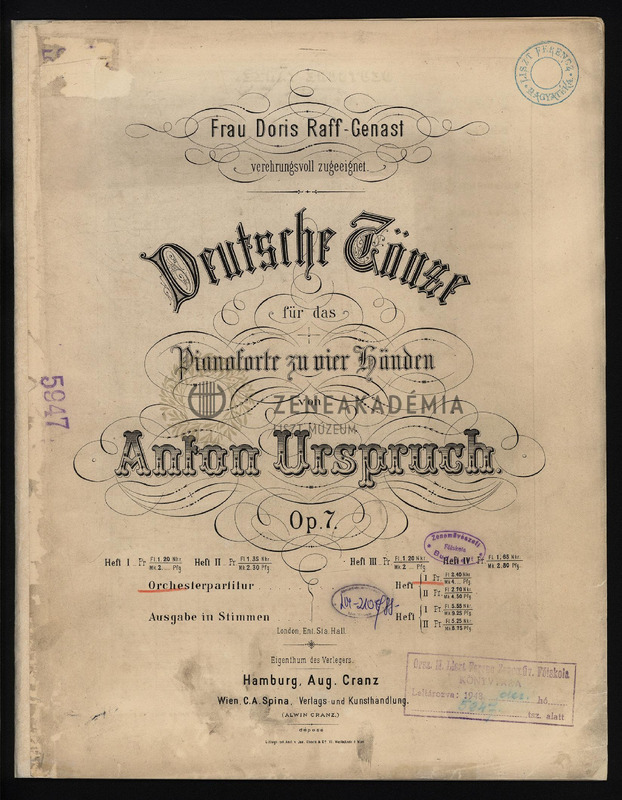 LISZT FERENC HAGYATÉKA
Frau Doris Raff-Genast
verehrungsvoll zugeeignet.
Deutsche Tänze
für das
Pianoforte zu vier Händen
von
ZENEAKADÉMIA
LISZT MÚZEUM
Anton Urspruch.
Op. 7.
5947
Zeneművészeti Főiskola Budapest
Heft I Pr. Fl. 1.20 Nkr. Mk. 2.__ Pfg. Heft II Pr. Fl. 1.35 Nkr. Mk. 2.30 Pfg. Heft III Pr. Fl. 1.20 Nkr. Mk. 2.__ Pfg. Heft IV Pr. Fl. 1.68 Nkr. Mk. 2.80 Pfg.
Orchesterpartitur Heft I Pr. Fl. 2.40 Nkr. Mk. 4.__ Pfg.
II Pr. Fl. 2.70 Nkr. Mk. 4.50 Pfg.
Ausgabe in Stimmen Heft I Pr. Fl. 5.55 Nkr. Mk. 9.25 Pfg.
II Pr. Fl. 5.25 Nkr. Mk. 8.75 Pfg.
London, Ent. Sta. Hall.
Eigenthum des Verlegers.
Hamburg, Aug. Cranz
Wien, C. A. Spina, Verlags- und Kunsthandlung.
(ALWIN CRANZ.)
déposé
Orsz. M. Liszt Ferenc Zeneműv. Főiskola
KÖNYVTÁRA
Leltározva: 194 hó
5947 tsz. alatt